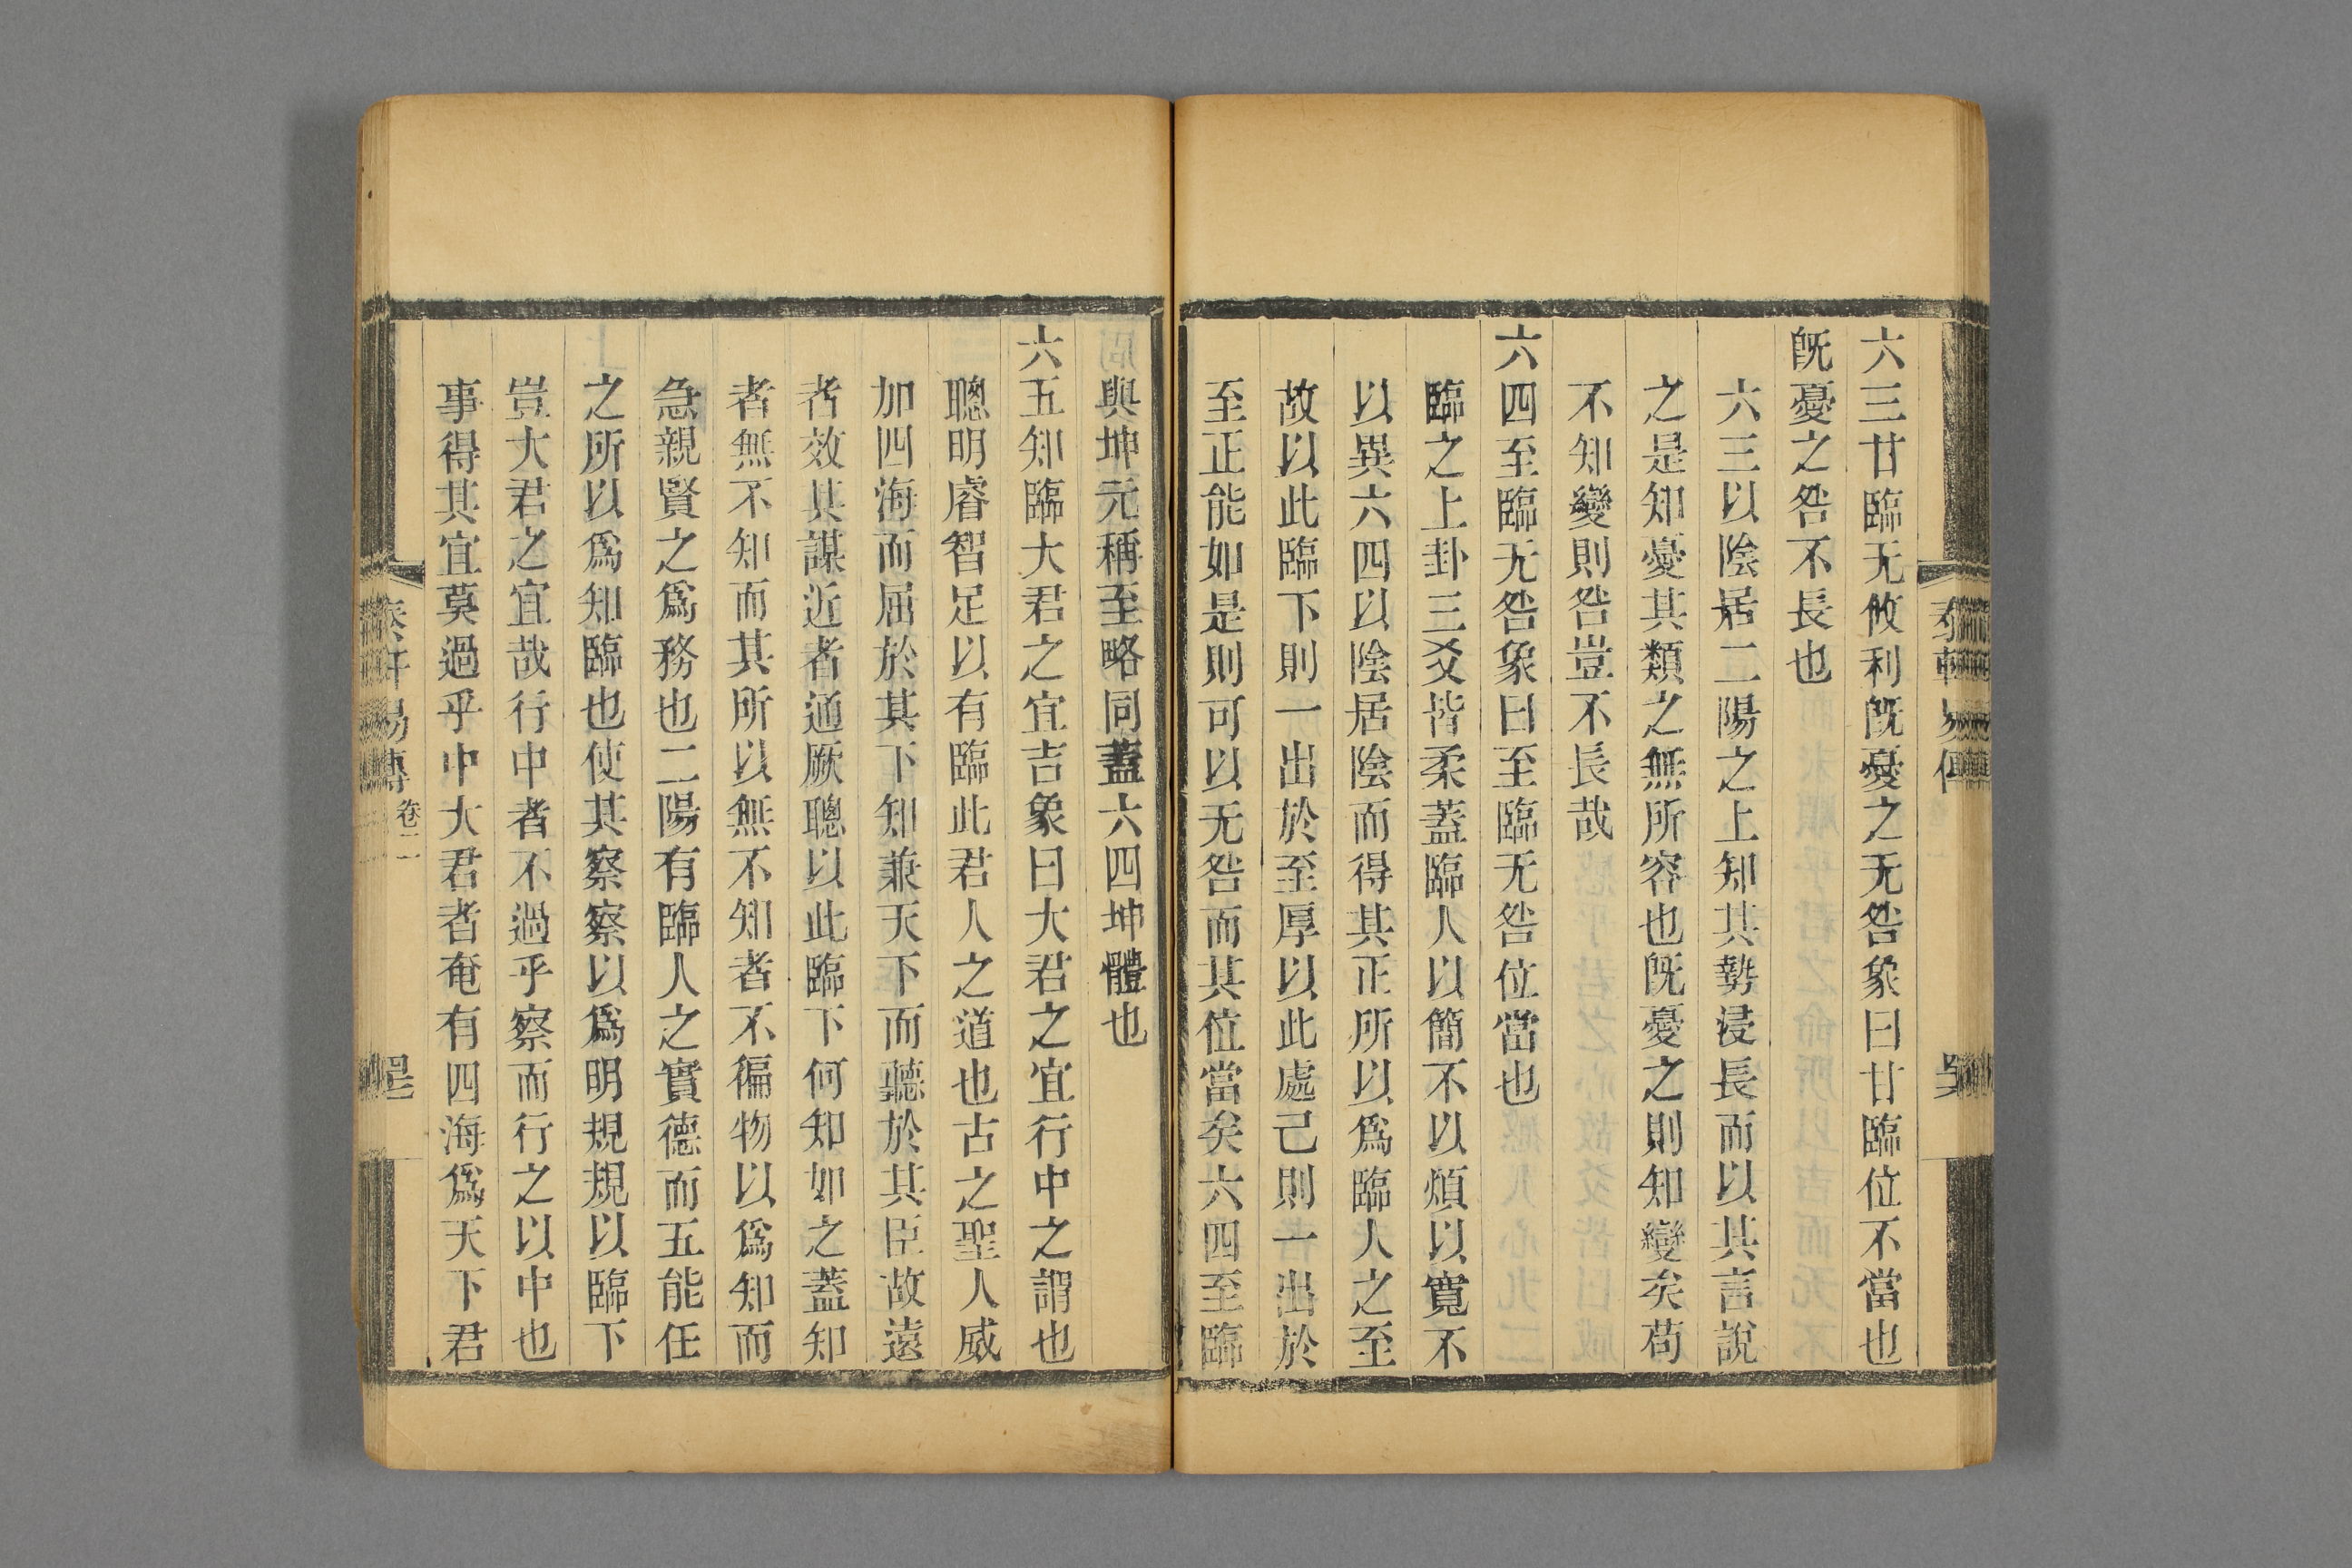 六三甘臨无攸利旣憂之无咎象曰甘臨位不當也
旣憂之咎不長也
六三以陰居二陽之上知其勢浸長而以其言說
之是知憂其類之無所容也旣憂之則知變矣苟
不知變則咎豈不長哉
六四至臨无咎象曰至臨无咎位當也
臨之上卦三爻皆柔蓋臨人以簡不以煩以寬不
以異六四以陰居陰而得其正所以爲臨人之至
故以此臨下則一出於至厚以此處己則一出於
至正能如是則可以无咎而其位當矣六四至臨
與坤元稱至略同蓋六四坤體也
六五知臨大君之宜吉象曰大君之宜行中之謂也
聰明睿智足以有臨此君人之道也古之聖人威
加四海而屈於其下知兼天下而聽於其臣故遠
者效其謀近者通厥聰以此臨下何知如之蓋知
者無不知而其所以無不知者不徧物以爲知而
急親賢之爲務也二陽有臨人之實德而五能任
之所以爲知臨也使其察察以爲明規規以臨下
豈大君之宜哉行中者不過乎察而行之以中也
事得其宜莫過乎中大君者奄有四海爲天下君
易傳
卷二